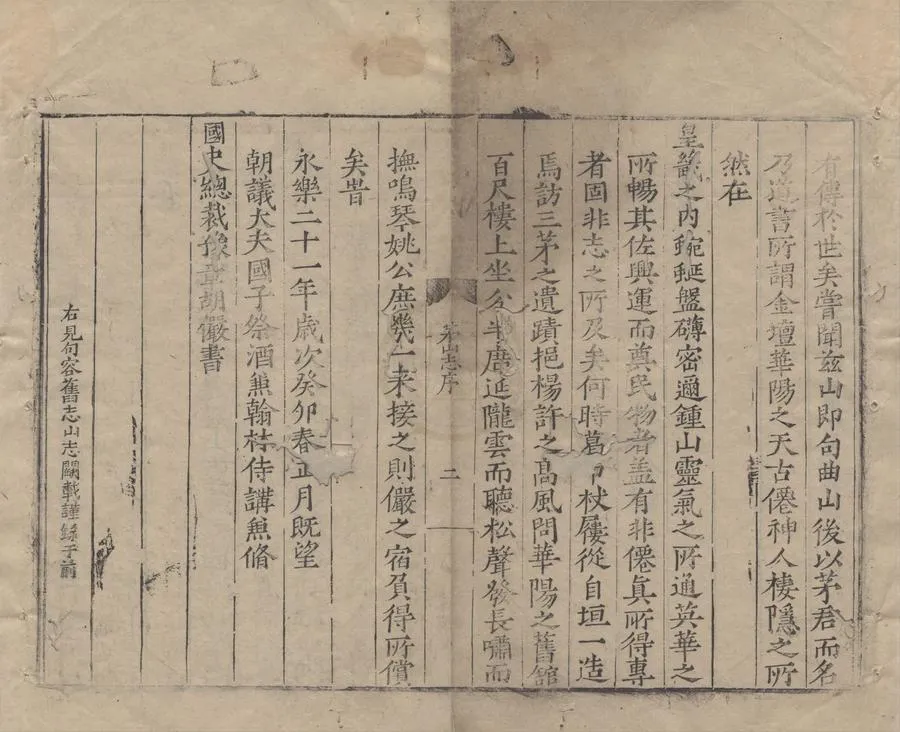 有傳於世矣嘗聞兹山即句曲山後以茅君而名
乃道書所謂金壇華陽之天古僊神人棲隱之所
然在
皇畿之内蜿蜒盤礴密邇鍾山靈氣之所通英華之
所暢其佐興運而奠民物者盖有非僊真所得專
者固非志之所及矣何時葛巾杖屨從自垣一造
焉訪三茅之遺蹟挹楊許之髙風問華陽之舊舘
百尺樓上坐分半席延隴雲而聽松聲發長嘯而
茅山志序
二
撫鳴琴姚公庶幾一来接之則儼之宿負得所償
矣旹
永樂二十一年歳次癸卯春正月既望
朝議大夫國子祭酒兼翰林侍講兼脩
國史總裁豫章胡儼書
右見句容舊志山志闕載謹録于前